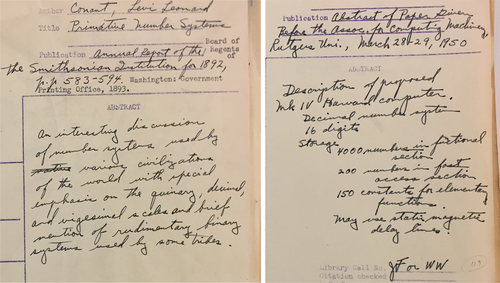 Author Conant, Levi Leonard
Title Primative Number Systems
Board of
Publication Annual Report of the Regents
of
the Smithsonian Institution for 1892,
p.p. 583-594. Washington: Government
Printing Office, 1893.
ABSTRACT
An interesting discussion
of number systems used by
various civilizations
of the world with special
emphasis on the quinary, decimal,
and vigesimal scales and brief
mention of rudimentary binary
systems used by some tribes.
Publication Abstract of Paper Given
Before the Assoc. for Computing Machinery,
Rutgers Univ., March 28-29, 1950
ABSTRACT
Description of proposed
Mk IV Harvard computer.
Decimal number system
16 digits
Storage
4000 numbers in functional
section
200 numbers in fast
access section
150 constants for elementary
functions.
May use static magnetic
delay lines.
Library Call No.
Citation checked
JF or WW